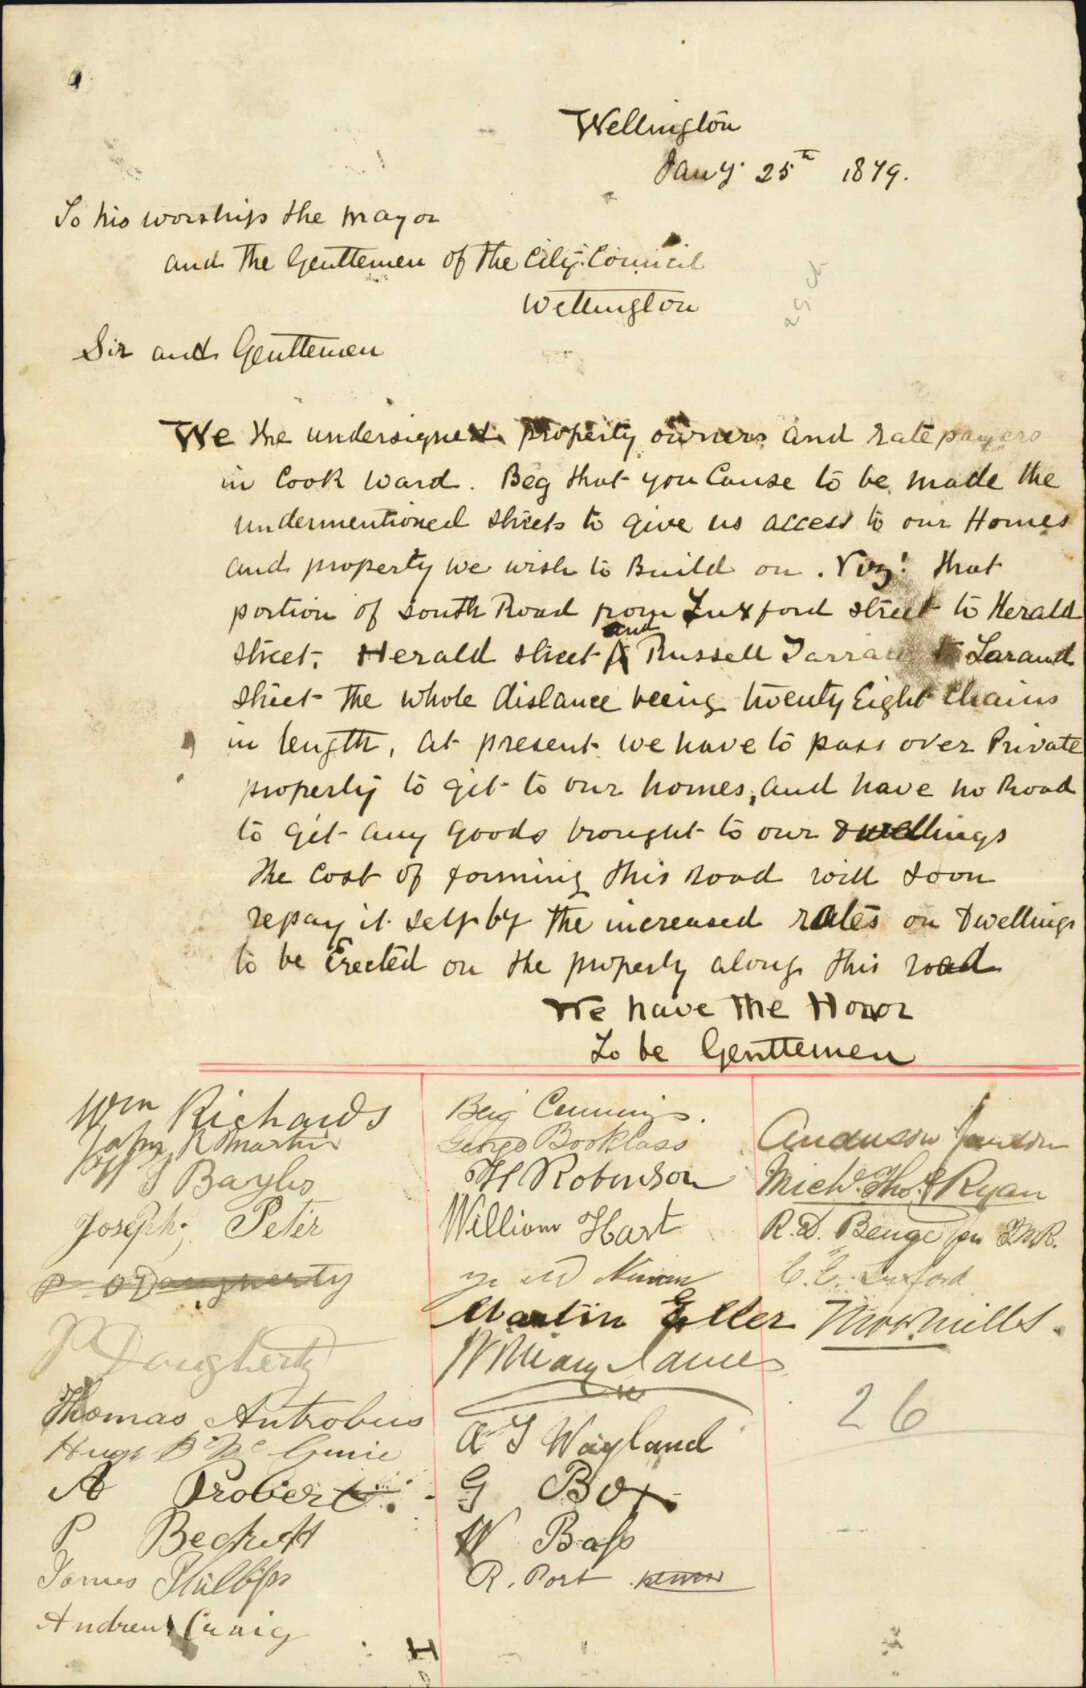 Wellington
Jany 25th 1879.
To his worship the mayor
and the Gentlemen of the City Council
Wellington
Sir and Gentlemen
We the undersigned property owners and rate payers
in Cook Ward. Beg that you Cause to be made the
undermentioned streets to give us access to our Homes
and property we wish to Build on. Viz: that
portion of South Road from Luxford street to Herald
street, Herald street and Russell Terrace to
street the whole distance being twenty Eight Chains
in length, at present we have to pass over Private
property to get to our homes, and have no Road
to get any goods brought to our dwellings
the Cost of forming this road will soon
repay it self by the increased rates on Dwellings
to be Erected on the property along this road
We have the Honor
To be Gentlemen
Wm Richards
John R Martin
Bayliss
Joseph Peter
P O'Daugherty
P Daugherty
Thomas Antrobus
Hugh B Mc
A Probert
P Beckett
James Phillips
Andrew Craig
Benj Cummings.
Booklass
H Robinson
William Hart
Martin Eller
William James
A T Wayland
G Box
W Bass
R. Port
Anderson
Michl. Thos. Ryan
R. D. Benge
C. E. Luxford
Mills.
26